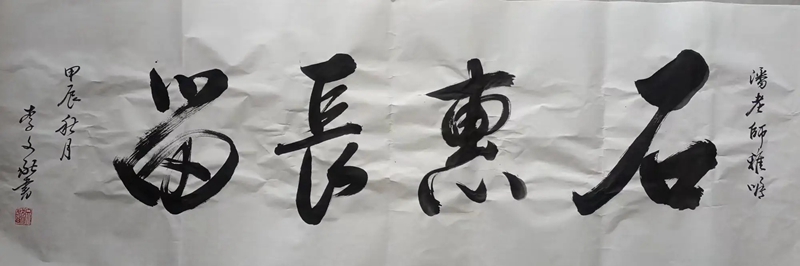 潘老師雅嘱
石惠長留
甲辰秋月
李文
書